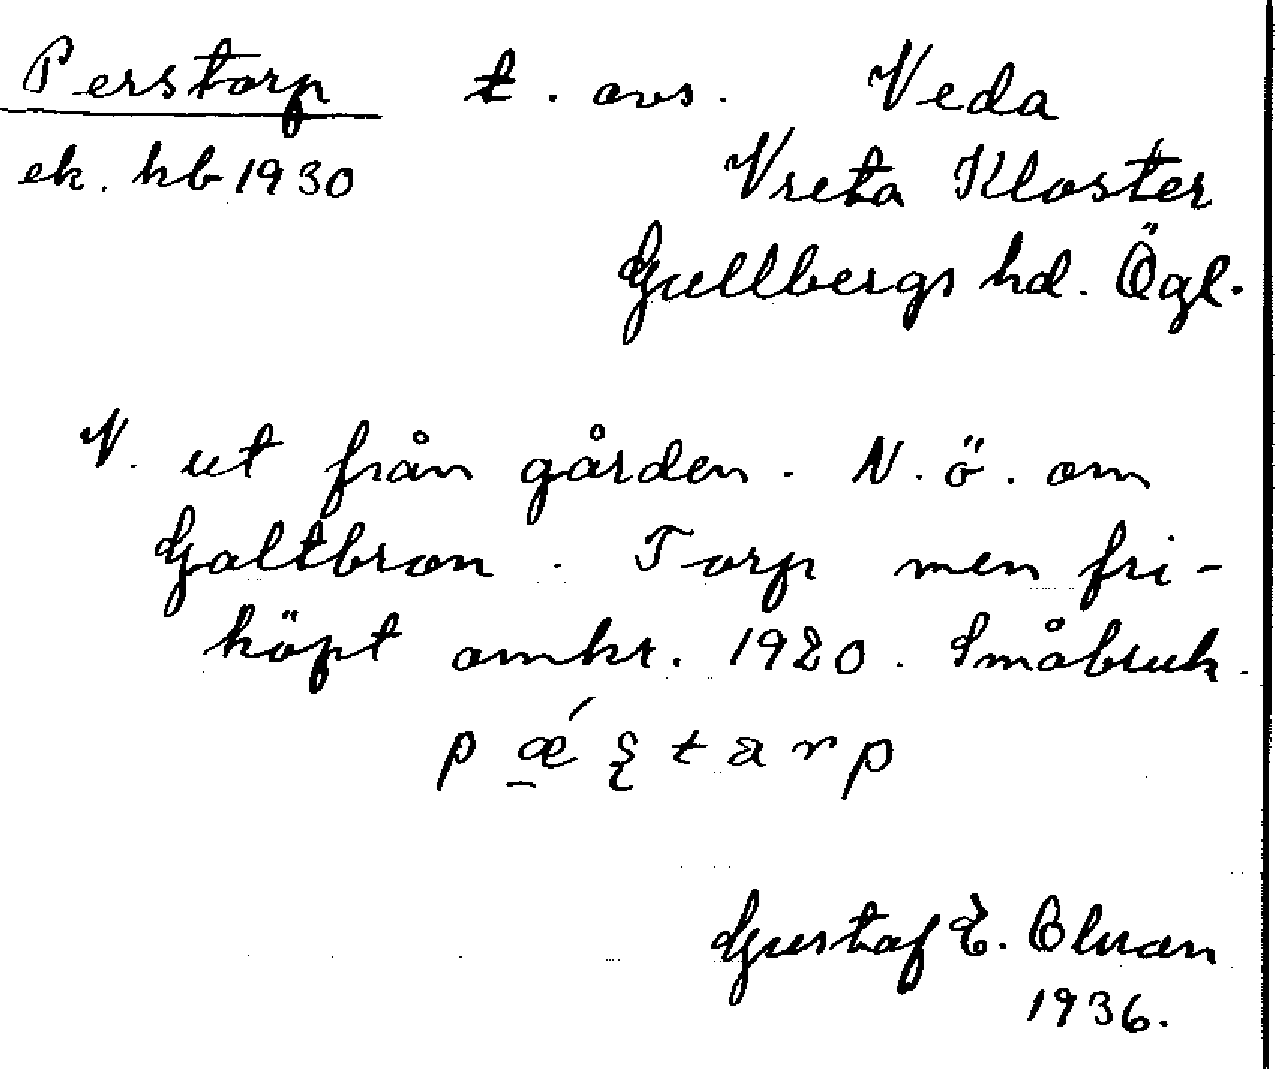 Perstorp t. avs. Veda
ek. hb 1930 Vreta Kloster
Gullbergs hd. Ögl.
N. ut från gården. N. ö. om
Galtbron. Torp men fri-
köpt omkr. 1920. Småbruk.
Gustaf E.
1936.